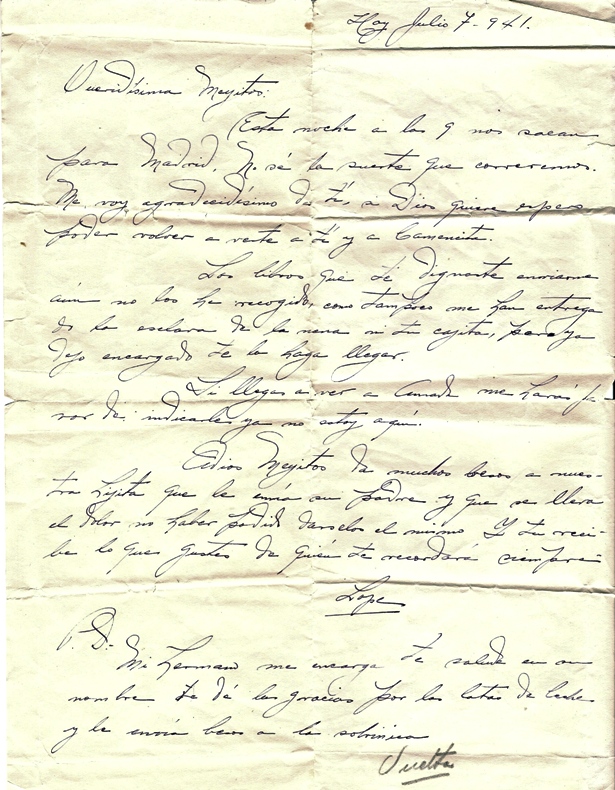 Hoy Julio 7-941.
Queridísima Meyitos:
Esta noche a las 9 nos sacan
para Madrid, No sé la suerte que correremos.
Me voy agradecidísimo de tí, si Dios quiere espero
poder volver a verte a tí y a Carmencita.
Los libros que te dignaste enviarme
aún no los he recogido, como tampoco me han entrega
do la esclava de la nena ni tu cajita, pero ya
dejo encargado te lo haga llegar.
Si llegas a ver a Amada me harás fa
vor de indicarles ya no estoy aquí.
Adios Meyitos da muchos besos a nues-
tra hijita que le envía su padre y que se lleva
el dolor no haber podido darselos el mismo Y tu reci-
be lo que gustes de quién te recordará siempre
Lope
P.D.
Mi hermano me encarga te salude en su
nombre te dé las gracias por las latas de leche
y le envía besos a la sobrinica
Vuelta